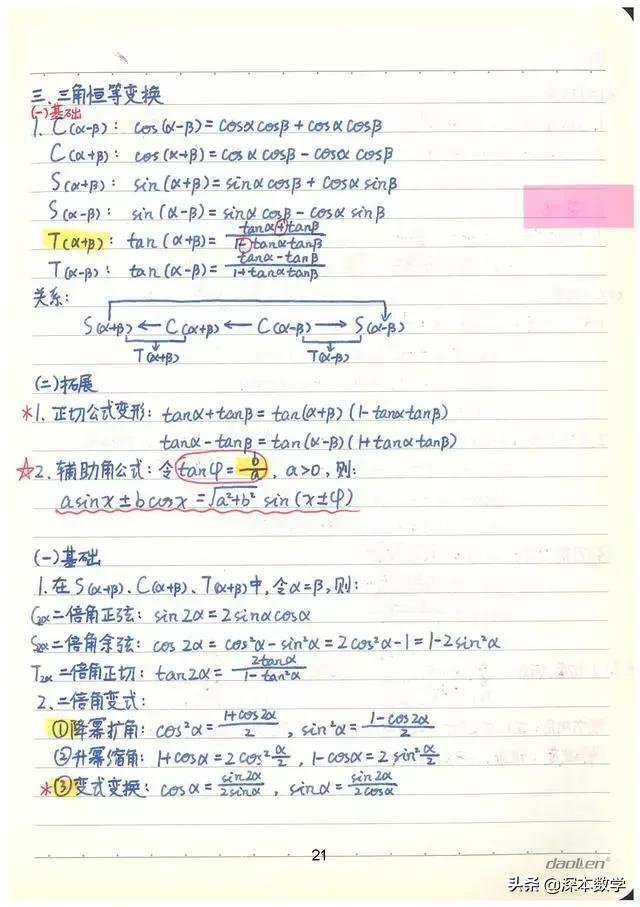 三、三角恒等变换
(一)基础
1. C(α-β)：cos(α-β)=cosαcosβ+cosαcosβ
C(α+β)：cos(α+β)=cosαcosβ-cosαcosβ
S(α+β)：sin(α+β)=sinαcosβ+cosαsinβ
S(α-β)：sin(α-β)=sinαcosβ-cosαsinβ
T(α+β)：tan(α+β)=(tanα+tanβ)/(1-tanαtanβ)
T(α-β)：tan(α-β)=(tanα-tanβ)/(1+tanαtanβ)
关系：
S(α+β) ← C(α+β) ← C(α-β) → S(α-β)
T(α+β) T(α-β)
(二)拓展
*1. 正切公式变形：tanα+tanβ=tan(α+β)(1-tanαtanβ)
tanα-tanβ=tan(α-β)(1+tanαtanβ)
☆2. 辅助角公式：令tanφ=b/a，a>0，则：
asinx±bcosx=√(a²+b²) sin(x±φ)
(一)基础
1. 在S(α+β)、C(α+β)、T(α+β)中，令α=β，则：
C2α二倍角正弦：sin2α=2sinαcosα
S2α二倍角余弦：cos2α=cos²α-sin²α=2cos²α-1=1-2sin²α
T2α二倍角正切：tan2α=2tanα/(1-tan²α)
2. 二倍角变式：
①降幂扩角：cos²α=(1+cos2α)/2，sin²α=(1-cos2α)/2
②升幂缩角：1+cosα=2cos²α/2，1-cosα=2sin²α/2
*③变式变换：cosα=sin2α/2sinα，sinα=sin2α/2cosα
21
daolen®
头条 @深本数学